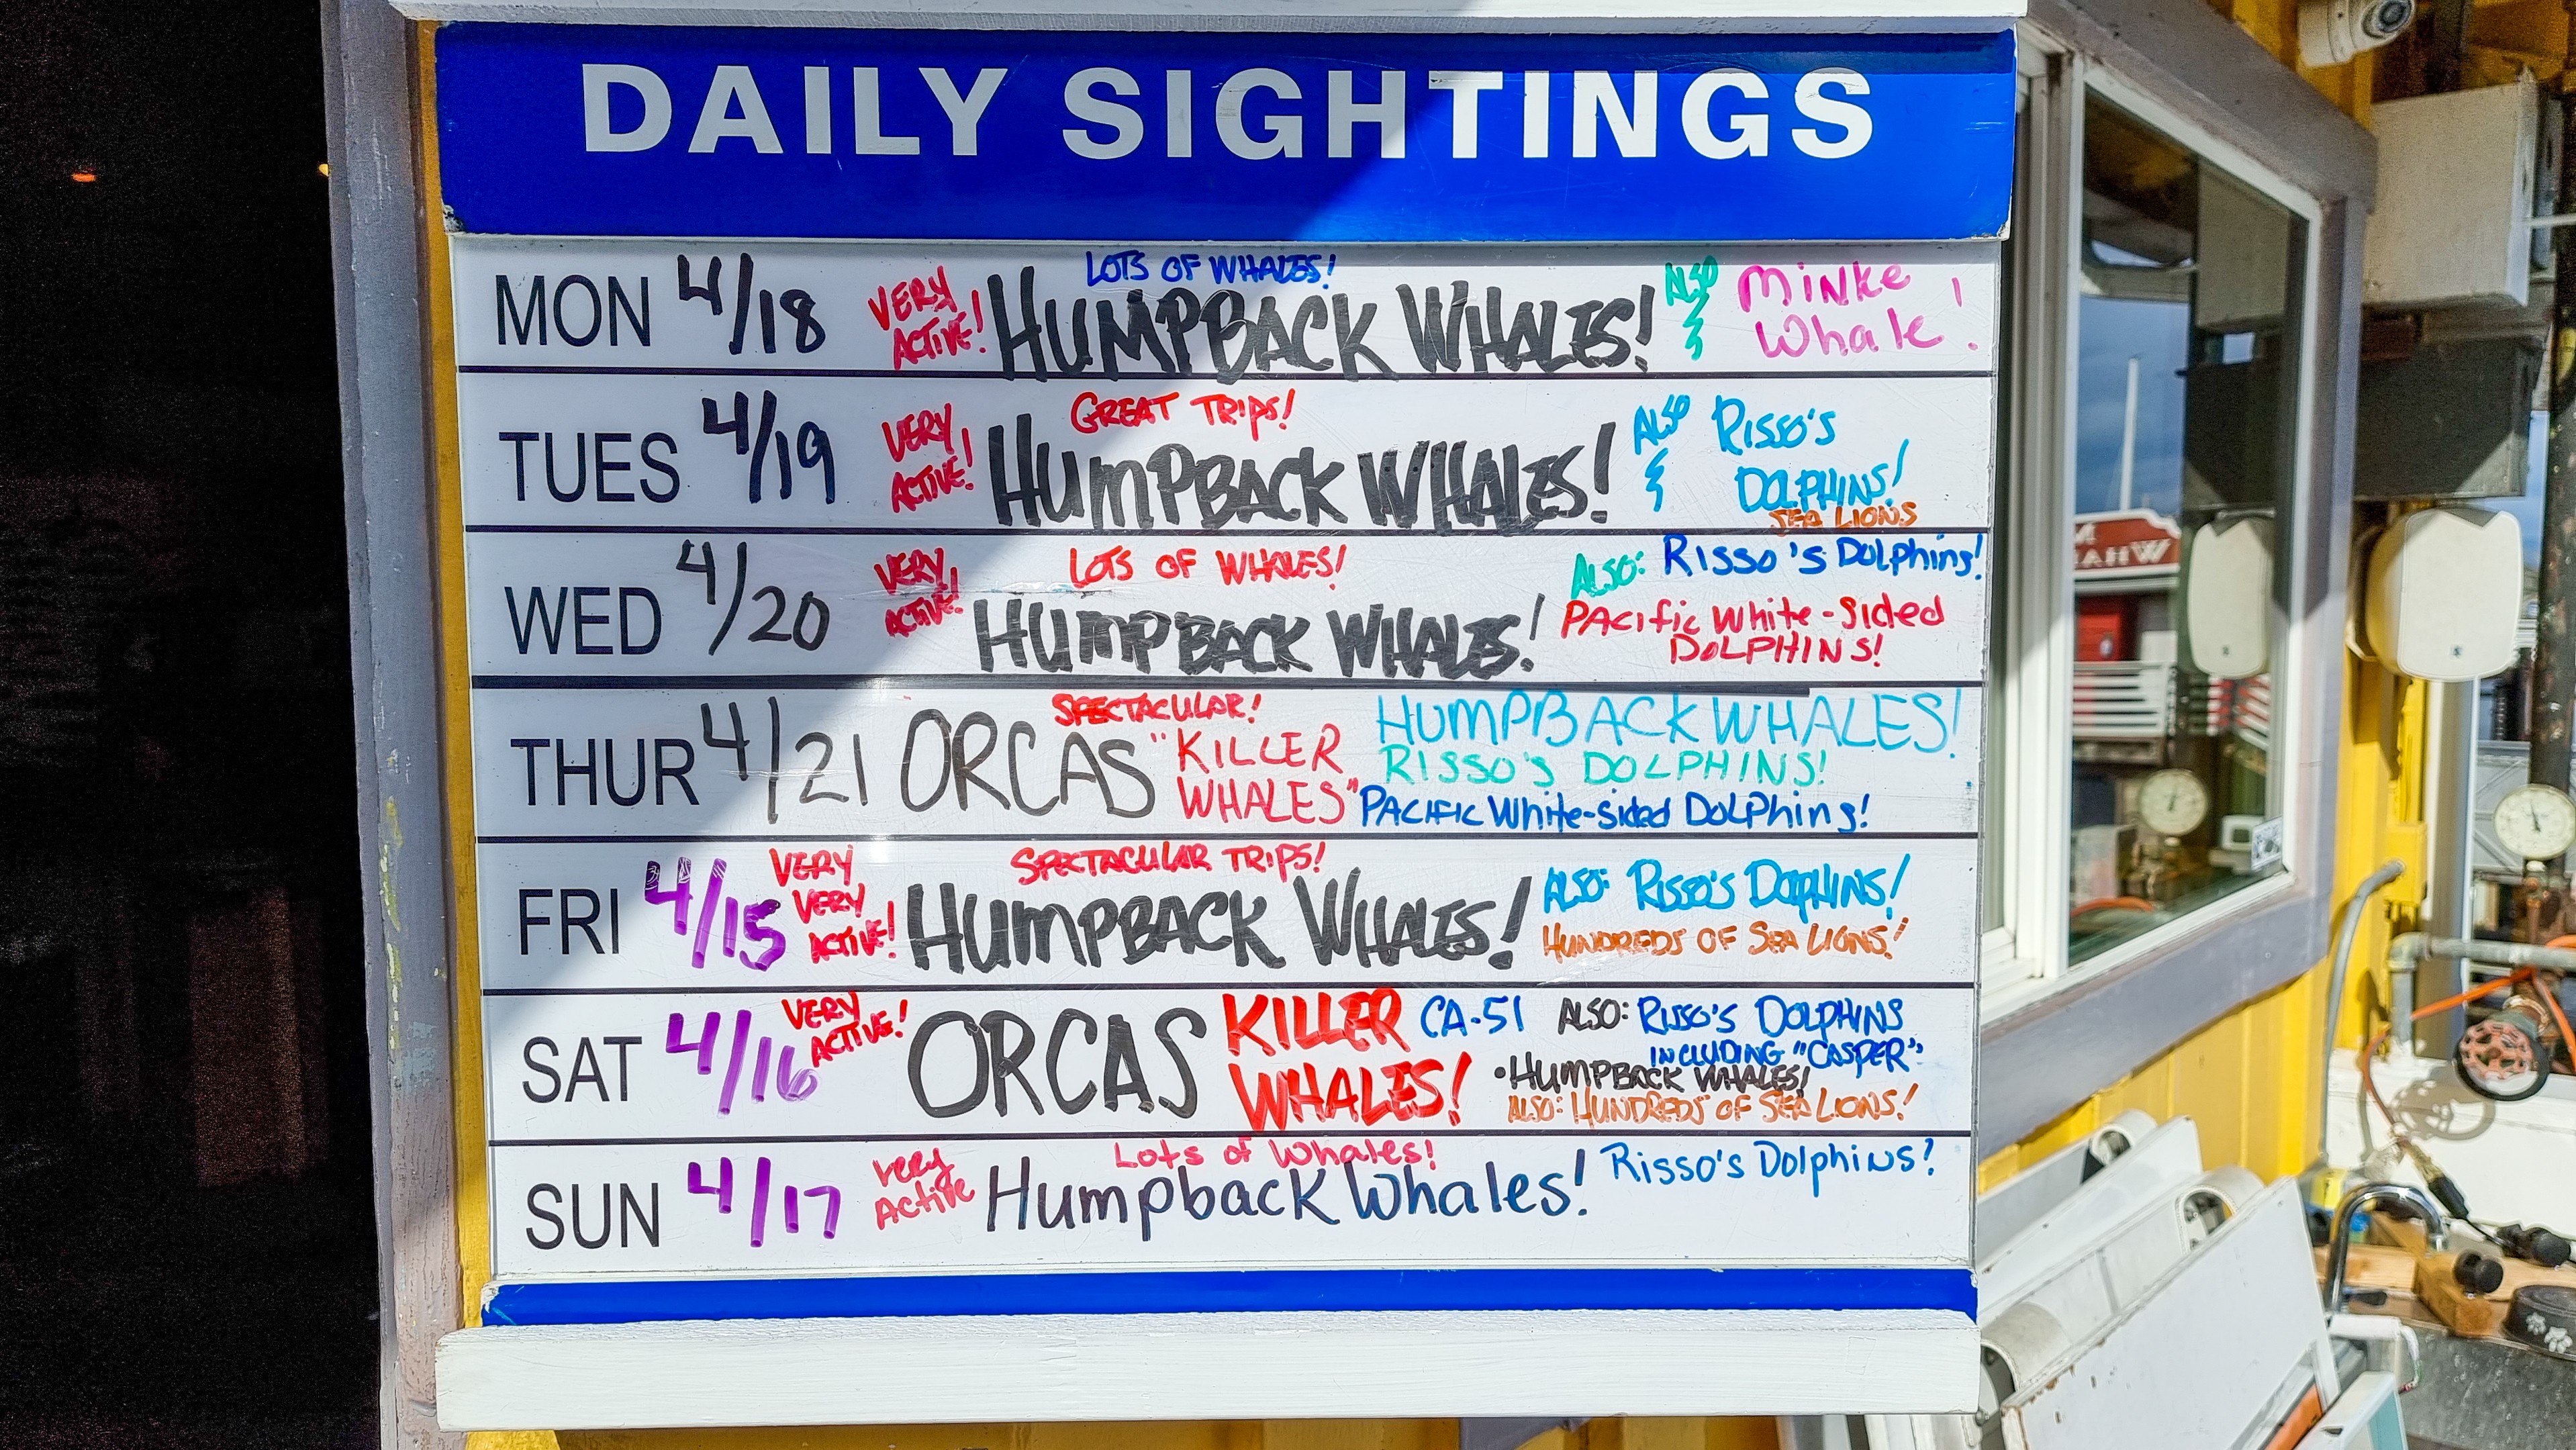 DAILY SIGHTINGS
MON 4/18 VERY ACTIVE! LOTS OF WHALES! HUMPBACK WHALES! ALSO Minke Whale!
TUES 4/19 VERY ACTIVE! GREAT TRIPS! HUMPBACK WHALES! ALSO RISSO'S DOLPHINS! SEA LIONS
WED 4/20 VERY ACTIVE! LOTS OF WHALES! HUMPBACK WHALES! ALSO: RISSO'S DOLPHINS!
PACIFIC WHITE-SIDED
DOLPHINS!
THUR 4/21 ORCAS SPECTACULAR! "KILLER WHALES" HUMPBACK WHALES!
RISSO'S DOLPHINS!
PACIFIC WHITE-SIDED DOLPHINS!
FRI 4/15 VERY VERY ACTIVE! SPECTACULAR TRIPS! HUMPBACK WHALES! ALSO: RISSO'S DOLPHINS!
HUNDREDS OF SEA LIONS!
SAT 4/16 VERY ACTIVE! ORCAS KILLER WHALES! CA-51 ALSO: RISSO'S DOLPHINS
INCLUDING "CASPER"
• HUMPBACK WHALES!
ALSO: HUNDREDS OF SEA LIONS!
SUN 4/17 Very Active Lots of Whales! Humpback Whales! Risso's Dolphins!